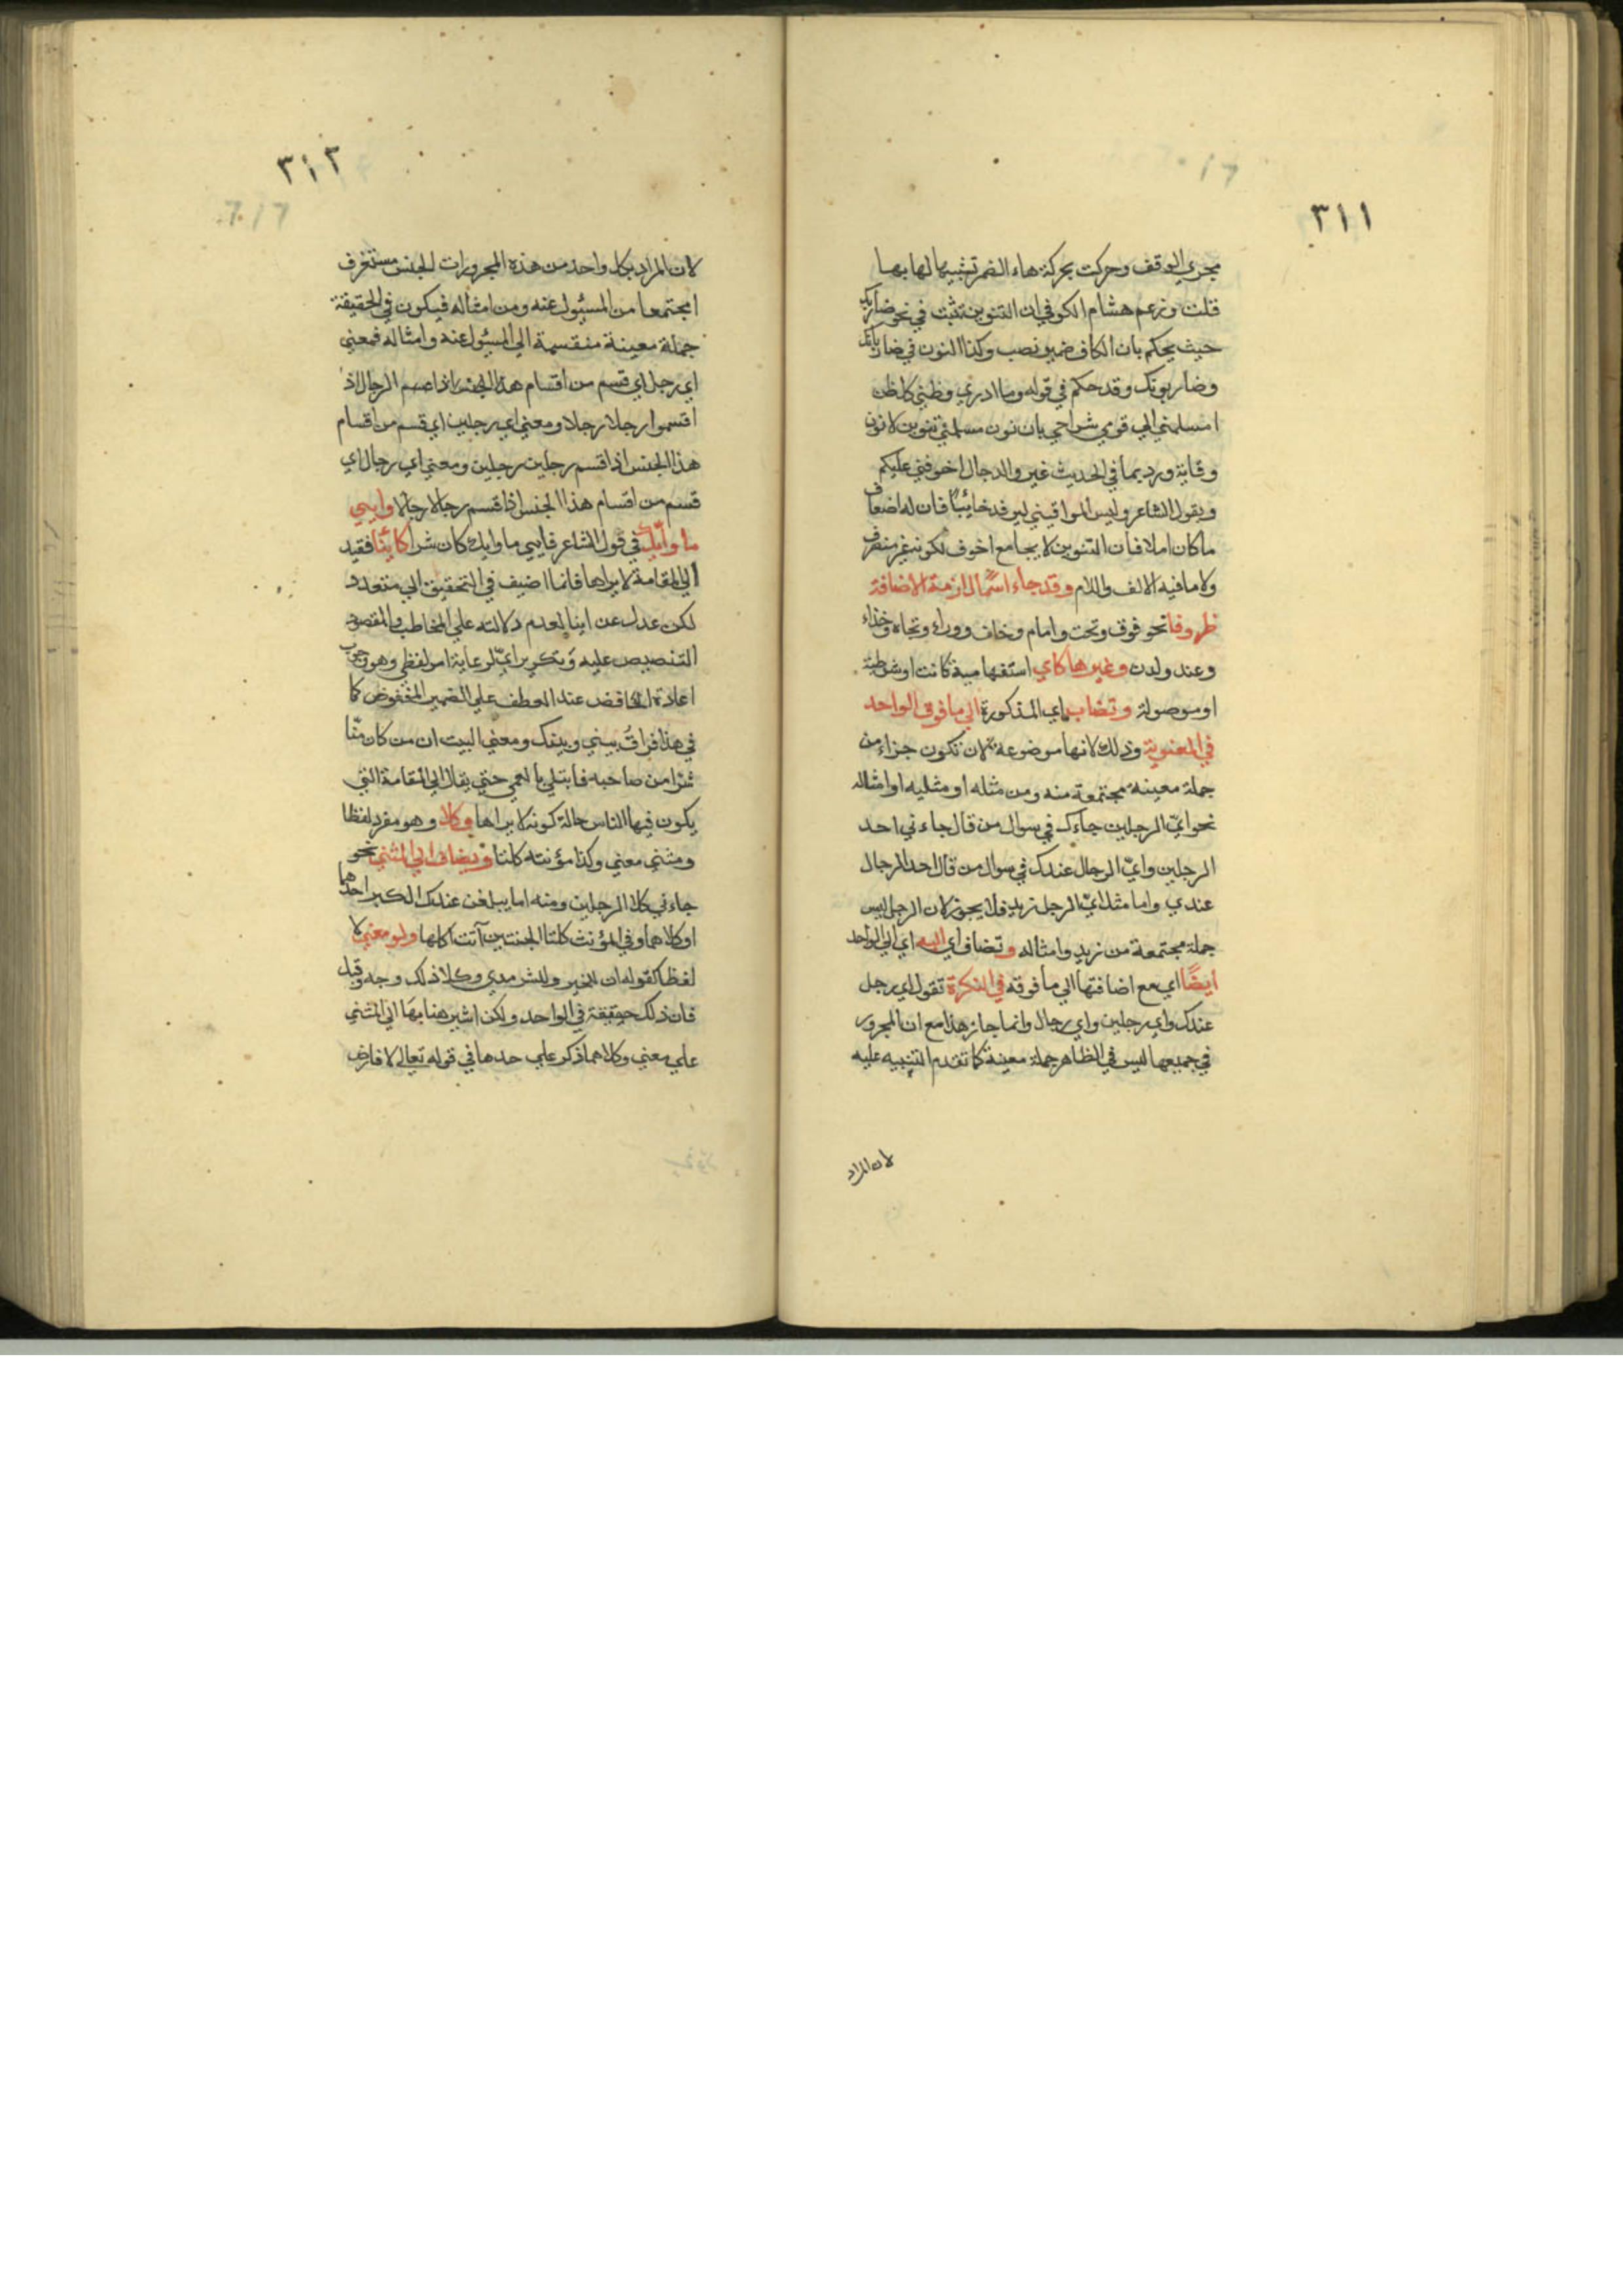 ٣١١
مجري الوقف وحركت بحركة هاء الضمير تشبيها لها بها
قلت وزعم هشام الكوفي ان التنوين تثبت في نحو ضاربك
حيث يحكم بان الكاف ضمير نصب وكذا النون في ضاربانك
وضاربونك وقد حكم في قوله وما ادري وظني كل ظن
امسلمني الي قومي شراحي بان نون مسلمني تنوين لا نون
وقاية ورد بما في الحديث غير الدجال اخوفني عليكم
وبقول الشاعر وليس الموافيني ليرفد خائبًا فان له اضعاف
ما كان املا فان التنوين لا يجامع اخوف لكونه غير منصرف
ولا ما فيه الالف واللام وقد جاء اسمًا لازمة الاضافة
ظروفا نحو فوق وتحت وامام وخلف ووراء وتجاه وحذاء
وعند ولدن وغيرها كاي استفهامية كانت او شرطية
او موصولة وتضاف اي المذكورة الي ما فوق الواحد
في المعنوية وذلك لانها موضوعة لان تكون جزاء من
جملة معينة مجتمعة منه ومن مثله او مثليه او امثاله
نحو ايّ الرجلين جاءك في سوال من قال جاءني احد
الرجلين وايّ الرجال عندك في سوال من قال احد الرجال
عندي واما مثل ايّ الرجل زيد فلا يجوز لان الرجل ليس
جملة مجتمعة من زيد وامثاله وتضاف اي اليه اي الي الواحد
ايضًا اي مع اضافتها الي ما فوقه في النكرة تقول اي رجل
عندك واي رجلين واي رجال وانما جاز هذا مع ان المجرور
في جميعها ليس في الظاهر جملة معينة كما تقدم التنبيه عليه
لان المراد
٣١٢
لان المراد بكل واحد من هذه المجرورات الجنس مستغرف
امجتمعا من المسئول عنه ومن امثاله فيكون في الحقيقة
جملة معينة منقسمة الي المسئول عنه وامثاله فمعني
اي رجل اي قسم من اقسام هذا الجنس اذا صم الرجال اذ
اقسموا رجلا رجلا ومعني اي رجلين اي قسم من اقسام
هذا الجنس اذا قسم رجلين رجلين ومعني اي رجال اي
قسم من اقسام هذا الجنس اذا قسم رجالا رجالا وايبي
ما وايّك في قول الشاعر فايبي ما وايك كان شرا كائنًا فقيد
الي المقامة لا يراها فانما اضيف في التحقيق الي متعدد
لكن عدل عن اينا لعدم دلالته علي المخاطب والمقصود
التنصيص عليه وتكرير ايّ لرعاية امر لفظي وهو وجوب
اعادة الخافض عند العطف علي الضمير المخفوض كما
في هذا فراقُ بيني وبينك ومعني البيت ان من كان منّا
شرا من صاحبه فابتلي بالعمي حتي يقاد الي المقامة التي
يكون فيها الناس حالة كونه لا يراها وكلا وهو مفرد لفظا
ومثني معني وكذا مؤنثه كلتا ويضاف الي المثني نحو
جاءني كلا الرجلين ومنه اما يبلغن عندك الكبر احدهما
او كلاهما وفي المؤنث كلتا الجنتين آتت اكلها ولو معني لا
لفظا كقوله ان للخير وللشر مدي وكلا ذلك وجه وقبل
فان ذلك حقيقة في الواحد ولكن اشير هنا بها الي المثني
علي معني وكلاهما ذكر علي حدها في قوله تعالي لا فارض